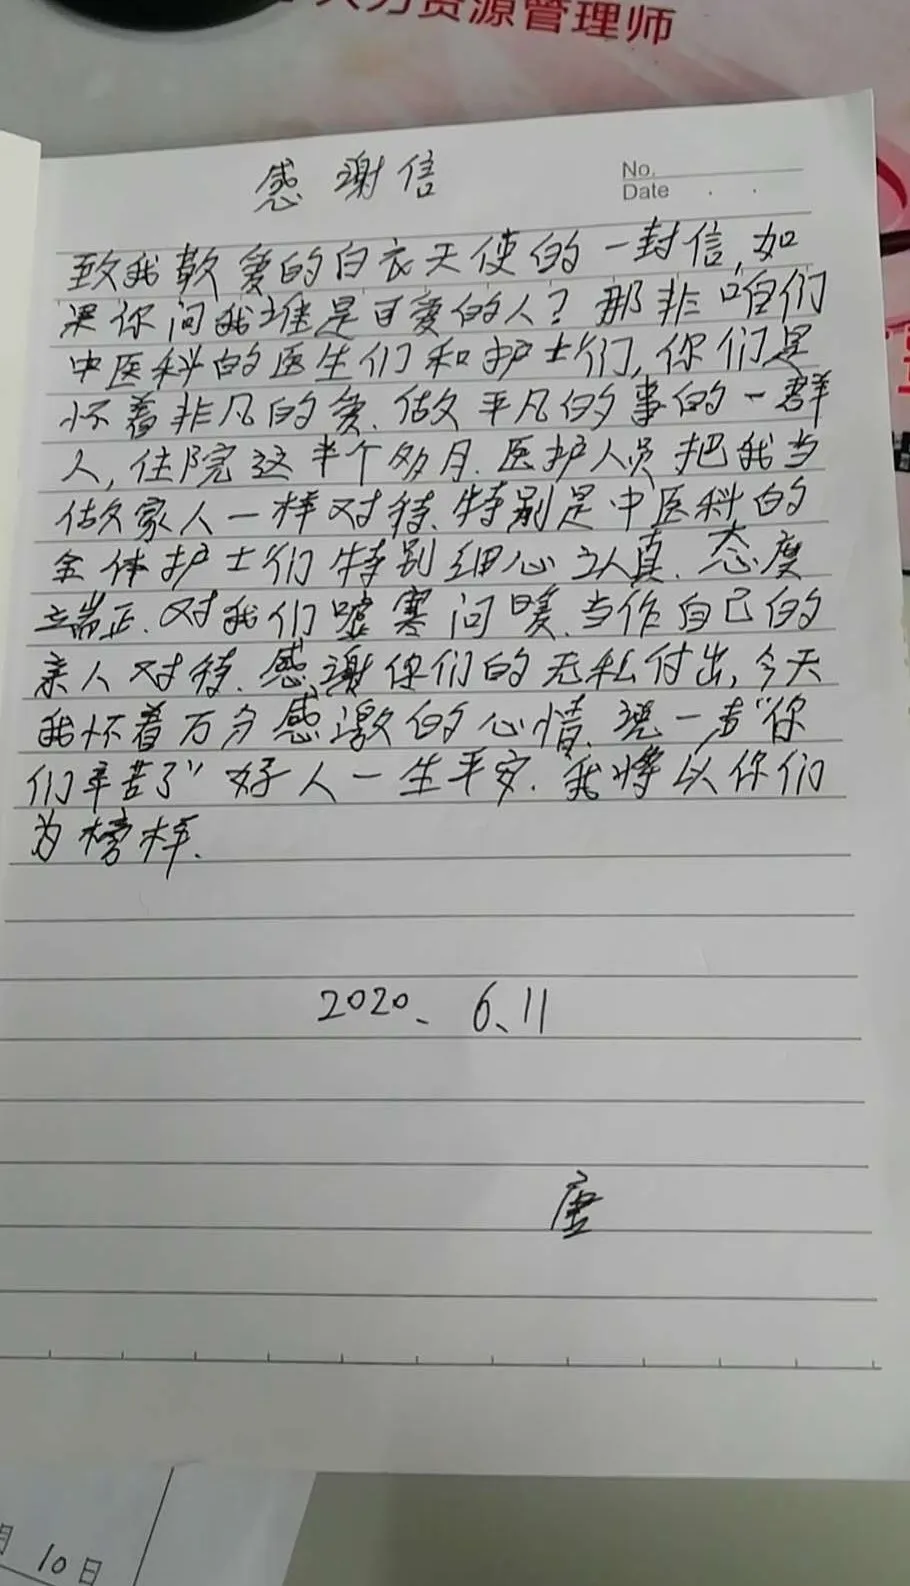 人力资源管理师
感谢信
No.
Date
致我敬爱的白衣天使的一封信,如
果你问我谁是可爱的人?那非咱们
中医科的医生们和护士们,你们是
怀着非凡的爱.做平凡的事的一群
人,住院这半个多月.医护人员把我当
做家人一样对待.特别是中医科的
全体护士们特别细心认真.态度
端正.对我们嘘寒问暖.当作自己的
亲人对待.感谢你们的无私付出,今天
我怀着万分感激的心情.说一声“你
们辛苦了”好人一生平安.我将以你们
为榜样.
2020、6、11
唐
月10日